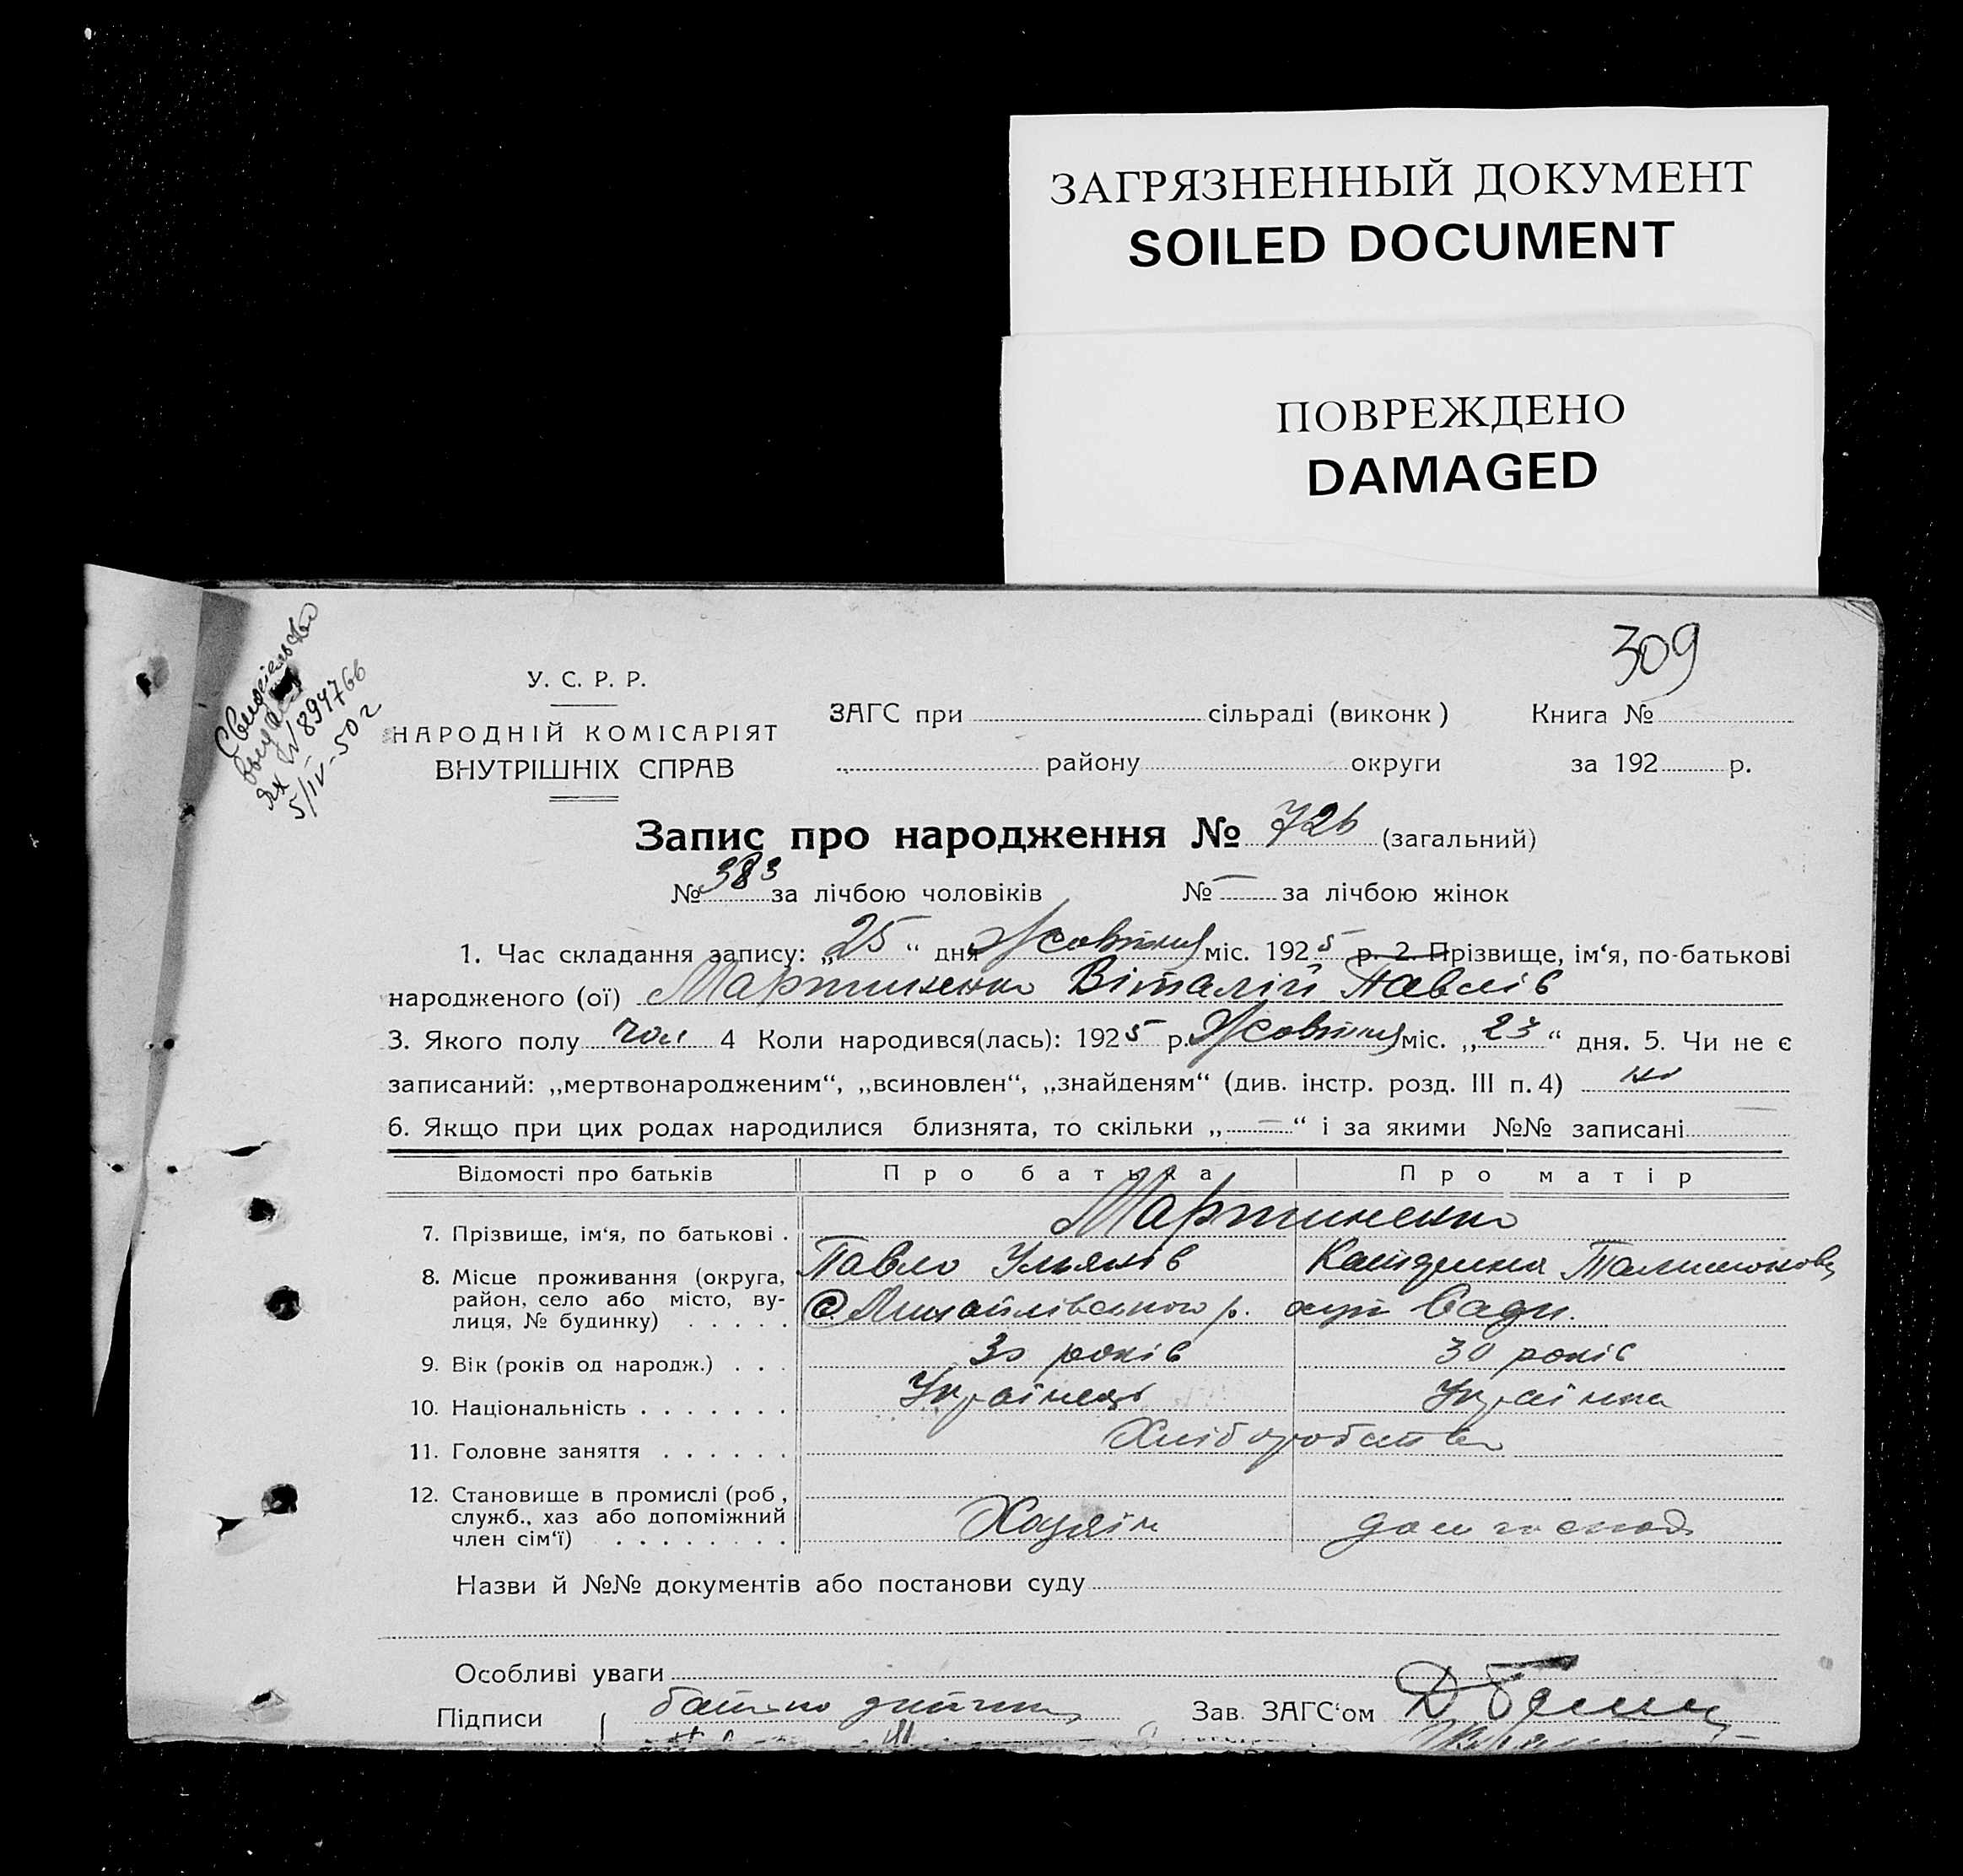 ЗАГРЯЗНЕННЫЙ ДОКУМЕНТ
SOILED DOCUMENT
ПОВРЕЖДЕНО
DAMAGED
309
У. С. Р. Р.
НАРОДНІЙ КОМІСАРІЯТ
ВНУТРІШНІХ СПРАВ
ЗАГС при сільраді (виконк) Книга №
району округи за 192 р.
№ 894766
5/IV-50 г
Запис про народження № 726 (загальний)
№ 383 за лічбою чоловіків № — за лічбою жінок
1. Час складання запису: „25“ дня Жовтня міс. 1925 р. 2. Прізвище, ім‘я, по-батькові
народженого (ої) Мартиненко Віталій Павлів
3. Якого полу чол 4 Коли народився(лась): 1925 р. Жовтня міс. „23“ дня. 5. Чи не є
записаний: „мертвонародженим“, „всиновлен“, „знайденям“ (див. інстр. розд. III п. 4) ні
6. Якщо при цих родах народилися близнята, то скільки „—“ і за якими №№ записані
Відомості про батьків Про батька Про матір
7. Прізвище, ім‘я, по батькові . Мартиненко
Павло Ульянів
8. Місце проживання (округа,
район, село або місто, ву-
лиця, № будинку) . . . . . Михайлівського р. хут Сади.
9. Вік (років од народж.) . . . 30 років 30 років
10. Національність . . . . . . . Українець Українка
11. Головне заняття . . . . . . Хліборобство
12. Становище в промислі (роб,
служб., хаз або допоміжний
член сім‘ї) . . . . . . . . Хазяін дом господ
Назви й №№ документів або постанови суду
Особливі уваги
Підписи батько Зав. ЗАГС‘ом